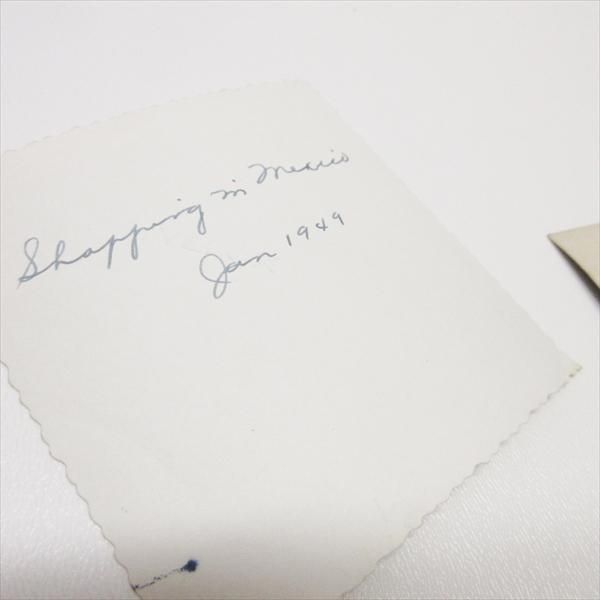 Shopping in Mexico
Jan 1949